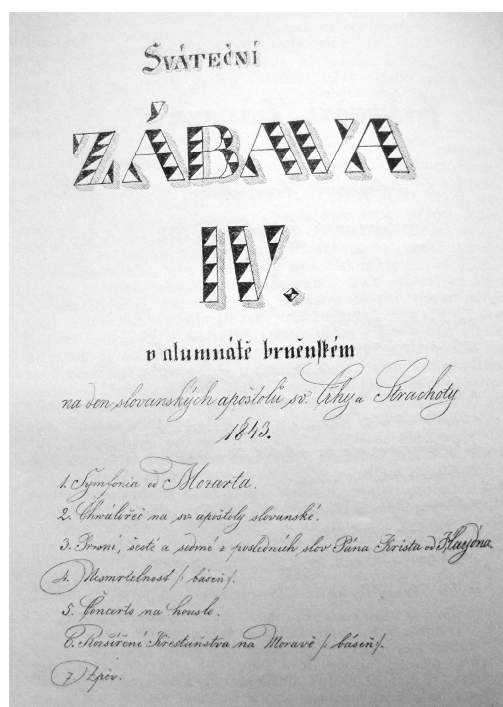 Sváteční
ZÁBAVA
IV.
v alumnátě brněnském
na den slovanských apoštolů sv. Crhy a Strachoty
1843.
1. Symfonia od Mozarta.
2. Chwálořeč na sv. apoštoly slovanské.
3. Prwní, šesté a sedmé z posledních slow Pána Krista od Haydna.
4. Nesmrtelnost /: báseň /.
5. Concerto na housle.
6. Rozšíření Křesťanstva na Moravě /: báseň /.
7. Zpěv.